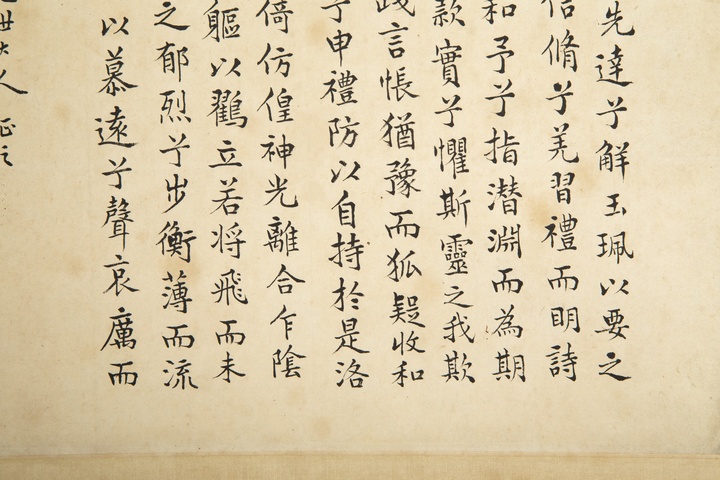 先達兮解玉珮以要之
信脩兮羌習禮而明詩
和予兮指潛淵而為期
款實兮懼斯靈之我欺
言悵猶豫而狐疑收和
申禮防以自持於是洛
倚仿偟神光離合乍陰
軀以鸛立若将飛而未
之郁烈兮步衡薄而流
以慕遠兮聲哀厲而
世大人正之